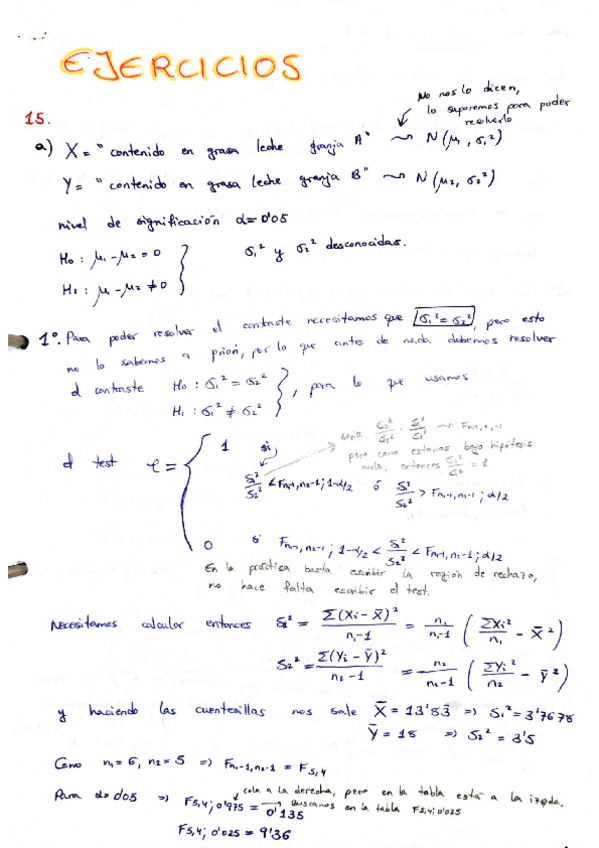 EJERCICIOS
No nos lo dicen,
lo suponemos para poder
resolverlo
15.
a) X = "contenido en grasa leche granja A" ~ N(μ₁, σ₁²)
Y = "contenido en grasa leche granja B" ~ N(μ₂, σ₂²)
nivel de significación α = 0'05
H₀ : μ₁ - μ₂ = 0
H₁ : μ₁ - μ₂ ≠ 0
σ₁² y σ₂² desconocidas.
1º. Para poder resolver el contraste necesitamos que σ₁² = σ₂², pero esto
no lo sabemos a priori, por lo que antes de nada debemos resolver
el contraste H₀ : σ₁² = σ₂²
H₁ : σ₁² ≠ σ₂² , para lo que usamos
sería σ₂²/σ₁² · S₁²/S₂² ~ Fn₁-1,n₂-1
pero como estamos bajo hipótesis
nula, entonces σ₂²/σ₁² = 1
el test φ = { 1 si
S₁²/S₂² < Fn₁-1,n₂-1; 1-α/2 ó S₁²/S₂² > Fn₁-1,n₂-1; α/2
0 si Fn₁-1,n₂-1; 1-α/2 < S₁²/S₂² < Fn₁-1,n₂-1; α/2
En la práctica basta escribir la región de rechazo,
no hace falta escribir el test.
Necesitamos calcular entonces S₁² = Σ(Xi - X̄)²/n₁-1 = n₁/n₁-1 (ΣXi²/n₁ - X̄²)
S₂² = Σ(Yi - Ȳ)²/n₂-1 = n₂/n₂-1 (ΣYi²/n₂ - Ȳ²)
y haciendo las cuentecillas nos sale X̄ = 13'83̄ => S₁² = 3'7678
Ȳ = 18 => S₂² = 3'5
Como n₁ = 6, n₂ = 5 => Fn₁-1,n₂-1 = F5,4
cola a la derecha, pero en la tabla está a la izqda.
Para α = 0'05 => F5,4; 0'975 = 0'135 → Buscamos en la tabla F5,4; 0'025
F5,4; 0'025 = 9'36